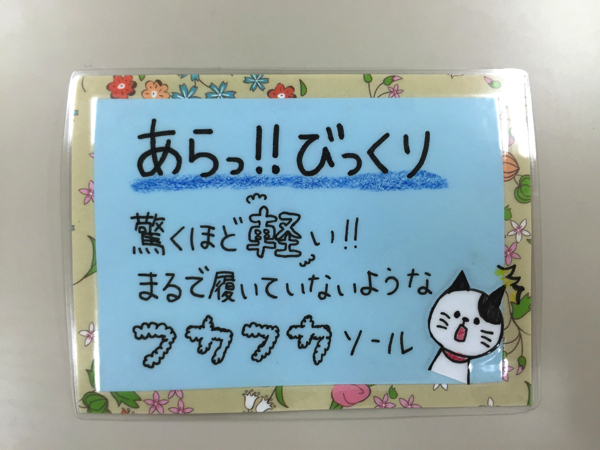 あらっ!!びっくり
驚くほど軽い!!
まるで履いていないような
フカフカソール